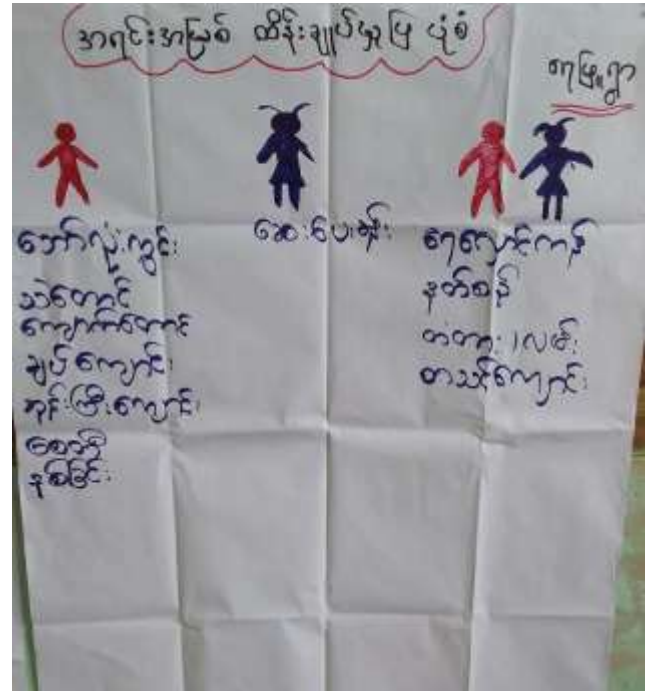 အရင်းအမြစ် ထိန်းချုပ်မှုပြ ပုံစံ
ရေဖြူရွာ
ဘော်လုံးကွင်း
သဲတောင်
ကျောက်တောင်
ချုပ်ကျောင်း
ဘုန်းကြီးကျောင်း
စေတီ
နှစ်ခြင်း
ဆေးပေးခန်း
ရေလှောင်ကန်
နတ်စင်
တံတား / လမ်း
စာသင်ကျောင်း